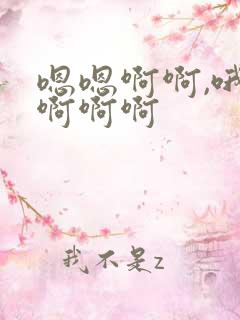 嗯嗯啊啊,哦
啊啊啊
我不是z